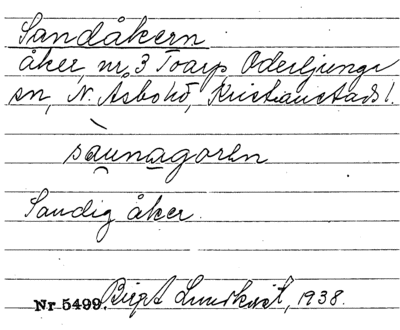 Sandåkern
åker, nr 3 Toarp, Oderljunga
sn, N. Åsbo hd, Kristianstads l.
saunagoren
Sandig åker.
Nr 5499. Birgit Lundkvist, 1938.